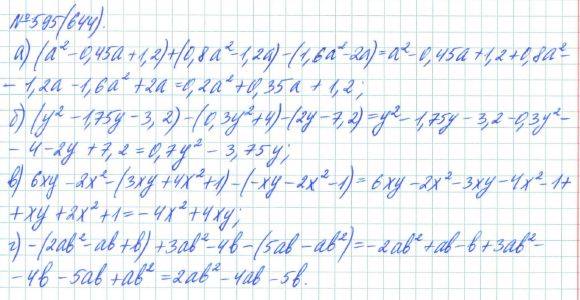 №595(644).
а) (a² - 0,45a + 1,2) + (0,8a² - 1,2a) - (1,6a² - 2a) = a² - 0,45a + 1,2 + 0,8a² -
- 1,2a - 1,6a² + 2a = 0,2a² + 0,35a + 1,2;
б) (y² - 1,75y - 3,2) - (0,3y² + 4) - (2y - 7,2) = y² - 1,75y - 3,2 - 0,3y² -
- 4 - 2y + 7,2 = 0,7y² - 3,75y;
в) 6xy - 2x² - (3xy + 4x² + 1) - (-xy - 2x² - 1) = 6xy - 2x² - 3xy - 4x² - 1 +
+ xy + 2x² + 1 = -4x² + 4xy;
г) -(2ab² - ab + b) + 3ab² - 4b - (5ab - ab²) = -2ab² + ab - b + 3ab² -
- 4b - 5ab + ab² = 2ab² - 4ab - 5b.